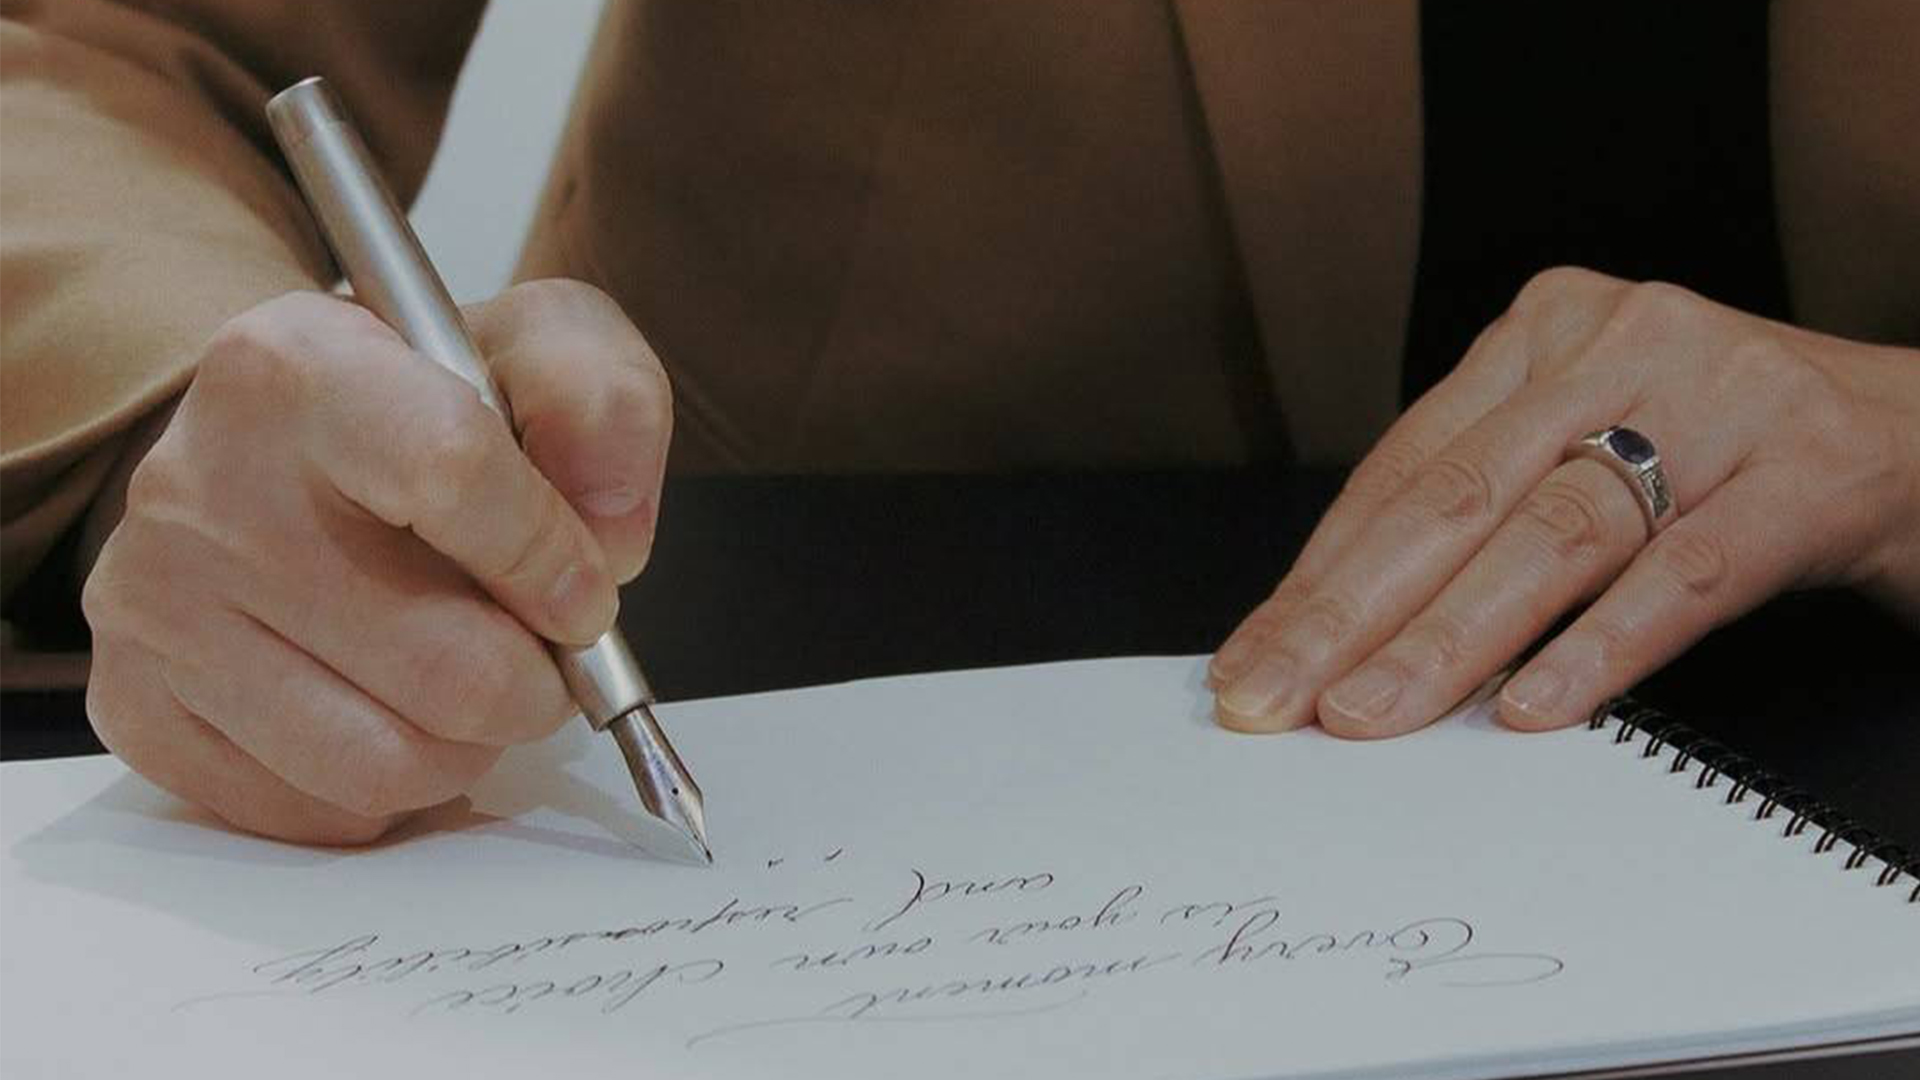 Every moment
is your own choice
and responsibility